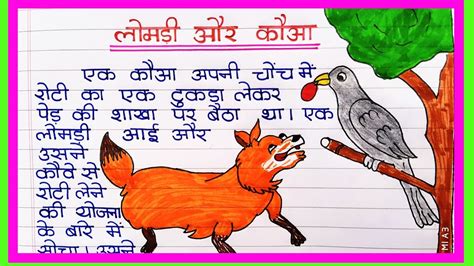 लोमड़ी और कौआ
एक कौआ अपनी चोंच में
रोटी का एक टुकड़ा लेकर
पेड़ की शाखा पर बैठा था। एक
लोमड़ी आई और
उसने
कौवे से
रोटी लेने
की योजना
के बारे में
सोचा। उसने
MIA3